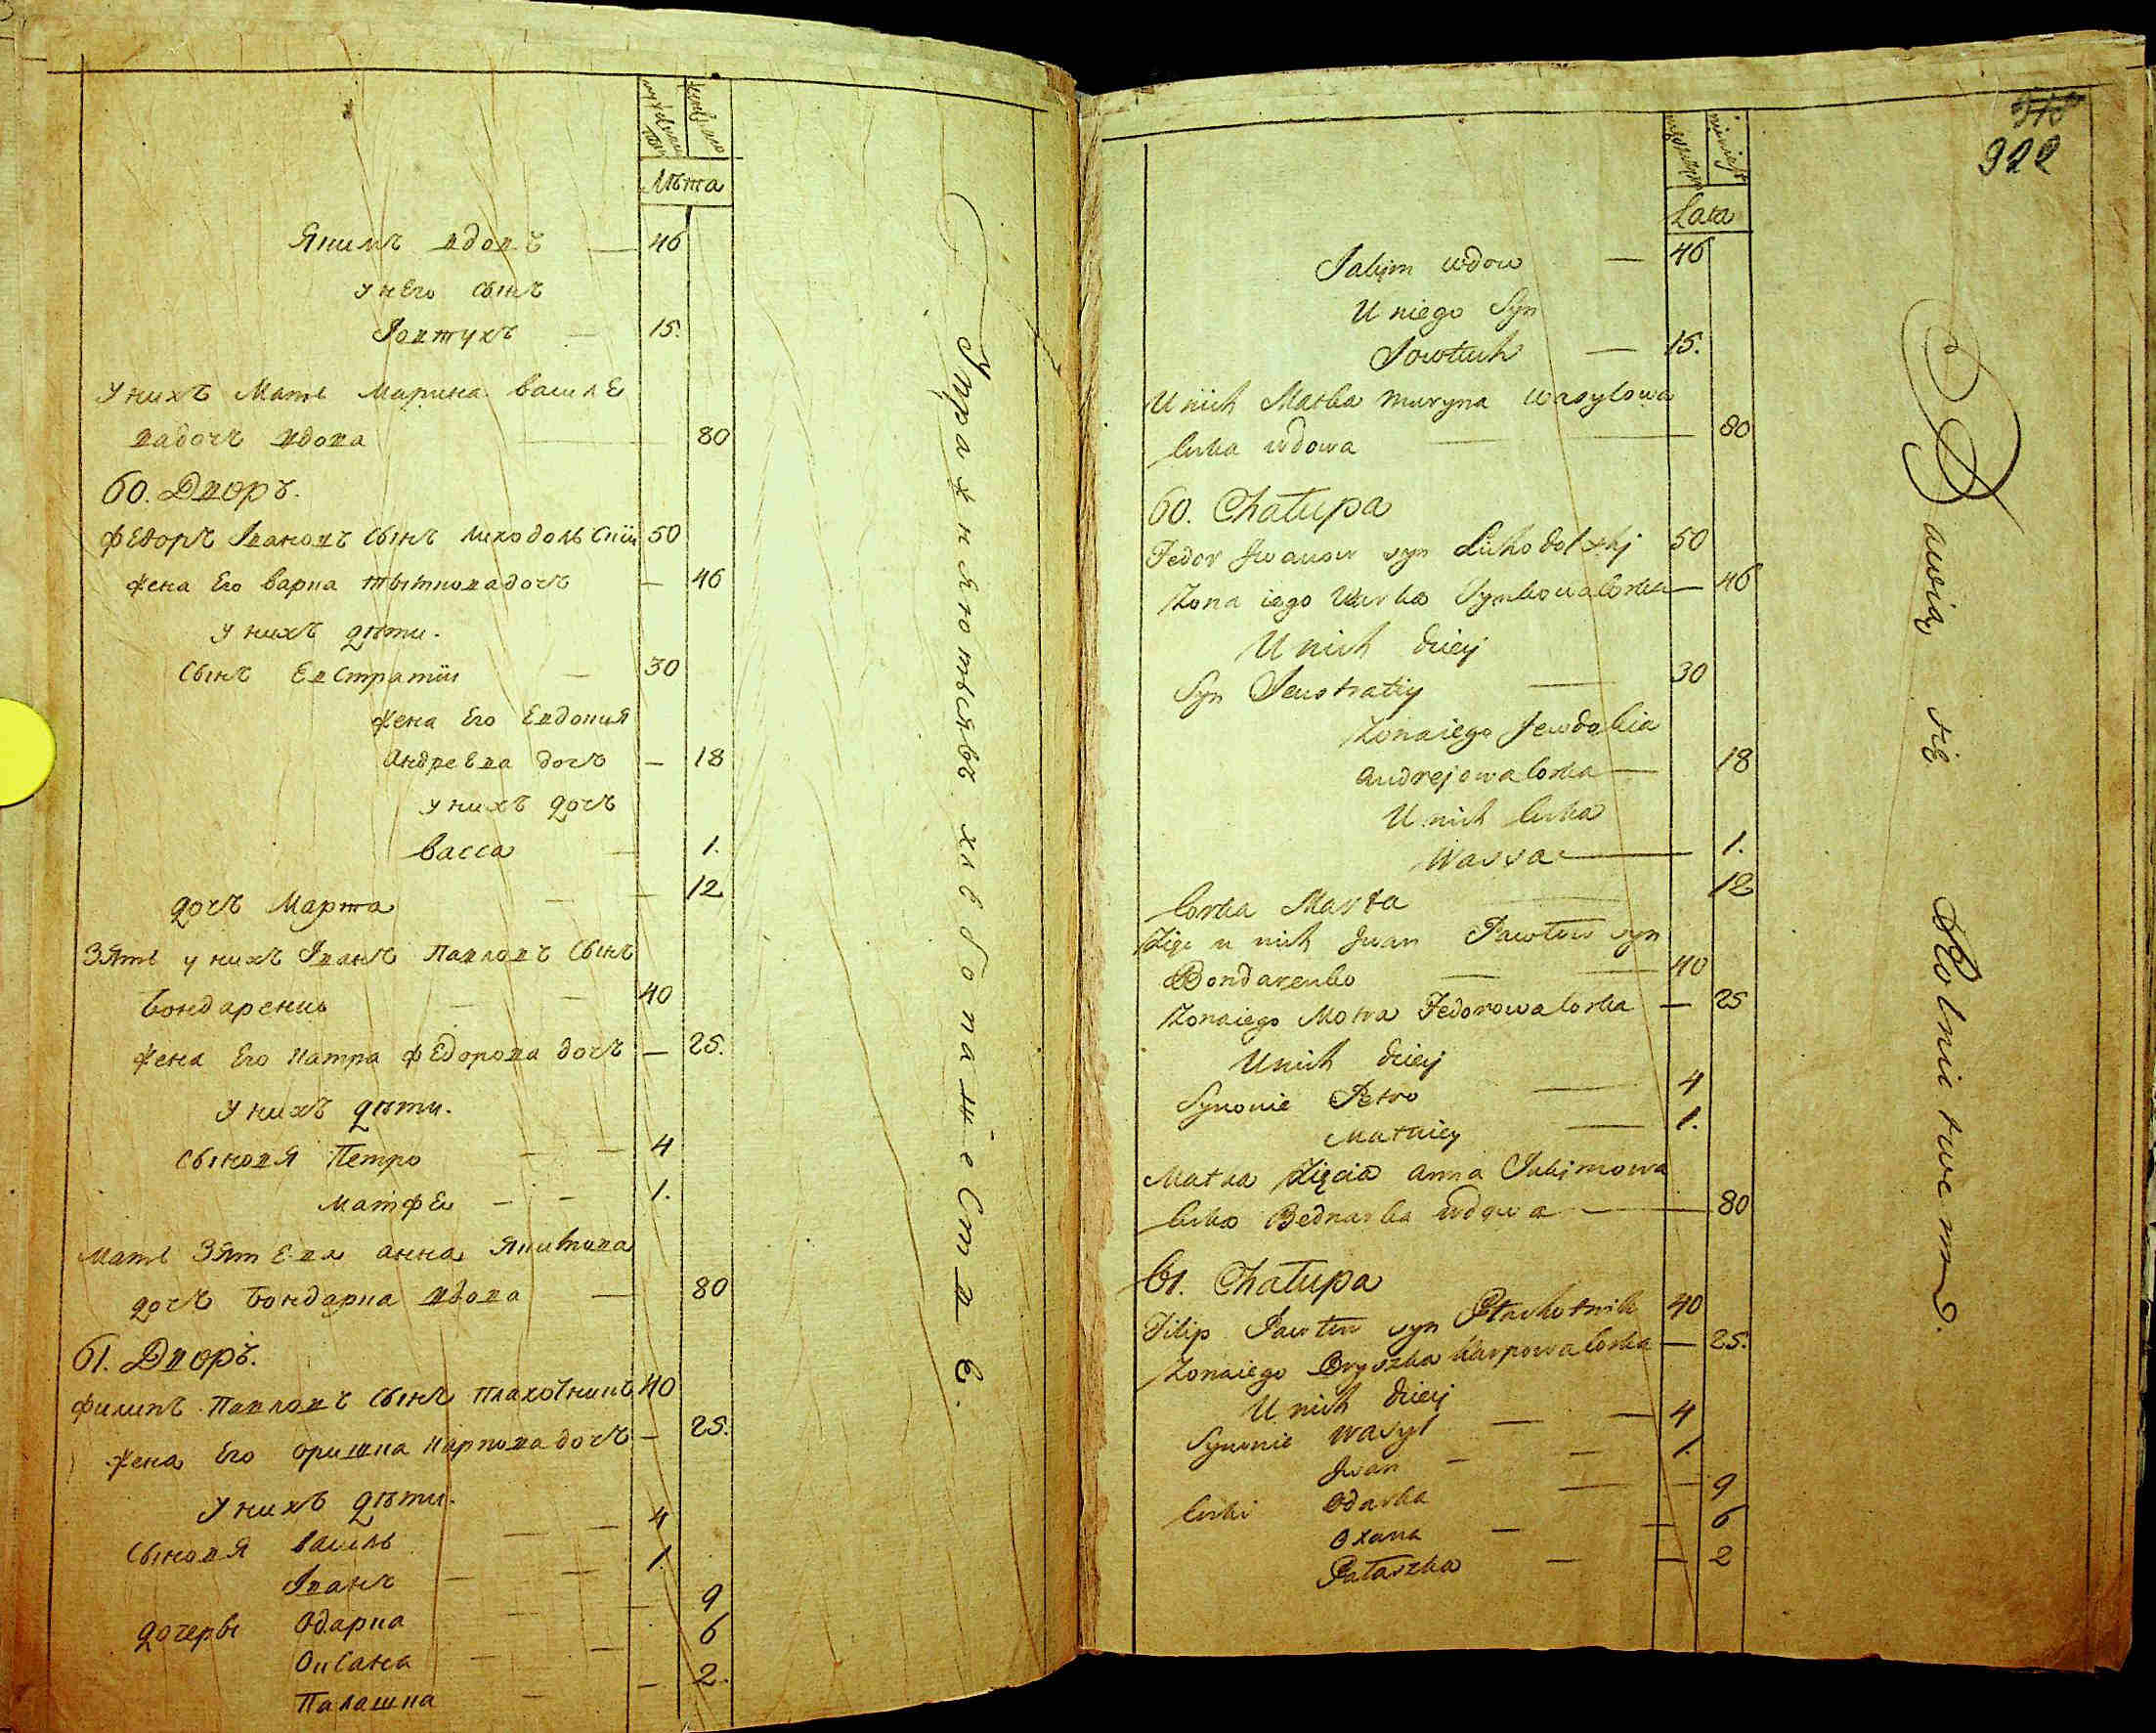 Лѣта
Якимъ вдовъ — 46
у него сынъ
Іовтухъ — 15.
У нихъ Мать Марина василе
вадочъ вдова — 80
60. Дворъ.
Федоръ Івановъ сынъ Лиходольскій 50
жена Его варка тытковадочъ — 46
у нихъ дѣти.
сынъ Евстратіи — 30
жена Его Евдокия
Андреева дочъ — 18
у нихъ дочъ
васса — 1.
дочъ Марта — 12
Зять у нихъ Іванъ Павловъ сынъ
Бондаренко — 40
жена Его Матра Федорова дочъ — 25.
У нихъ дѣти.
сыновя Петро — 4
Матфеи — 1.
Мать Зятева анна Якимова
дочъ Бондарка вдова — 80
61. Дворъ.
Филипъ Павловъ сынъ Плахотникъ 40
жена Его оришка Карповадочъ — 25.
У нихъ дѣти.
сыновя василь — 4
Іванъ — 1.
дочеры Одарка — 9
Оксана — 6
Палашка — 2.
Упражняютьявъ хлѣбопашествѣ.
922
Lata
Jakim wdow — 46
U niego Syn
Jowtuch — 15.
U nich Matka Maryna wasylowa
Curka wdowa — 80
60. Chałupa
Fedor Iwanow syn Lichodolskij 50
Zona iego Warka Tytkowa Corka — 46
U nich dzieij
Syn Jeustratiy — 30
Zona iego Jewdokia
Andrejowa Corka — 18
U nich Curka
Wassa — 1.
Corka Marta — 12
Zięc u nich Iwan Pawłow syn
Bondarenko — 40
Zona iego Motra Fedorowa Corka — 25
U nich dzieij
Synowie Petro — 4
Matwiey — 1.
Matka Zięcia Anna Jakimowa
Curka Bednarka wdowa — 80
61. Chałupa
Filip Pawłow syn Płachotnik 40
Zona iego Oryszka Karpowa Corka — 25.
U nich dzieij
Synowie Wasyl — 4
Iwan — 1.
Curki Odarka — 9
Oxana — 6
Pałaszka — 2
Bawią się Rolnictwem.